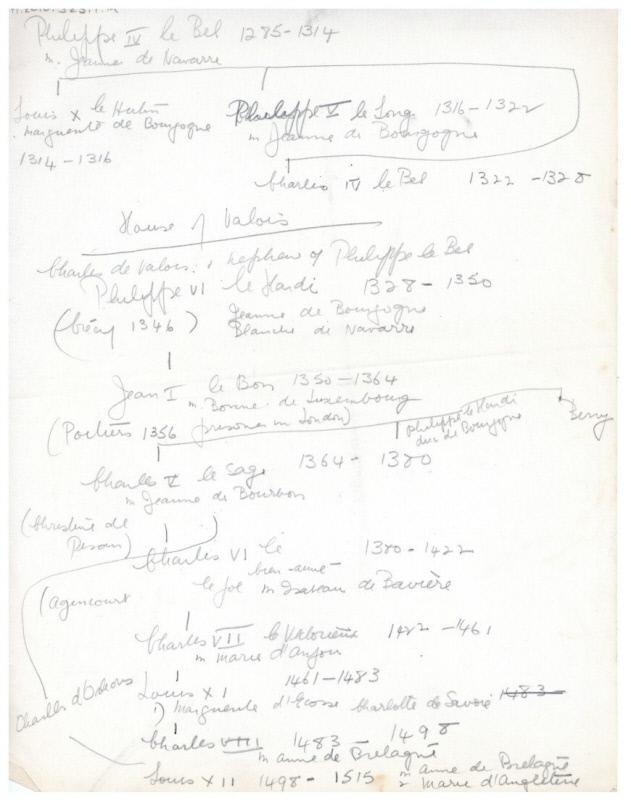 Philippe IV le Bel 1285-1314
m. Jeanne de Navarre
Louis X le Hutin
Marguerite de Bourgogne
1314-1316
Philippe V le Long 1316-1322
m Jeanne de Bourgogne
Charles IV le Bel 1322-1328
House of Valois
Charles de Valois. nephew of Philippe le Bel
Philippe VI le Hardi 1328-1350
(Crécy 1346) Jeanne de Bourgogne
Blanche de Navarre
Jean I le Bon 1350-1364
m. Bonne de Luxembourg
(Poitiers 1356 prisoner in London)
Philippe le Hardi
duc de Bourgogne
Berry
Charles V le Sage 1364-1380
m Jeanne de Bourbon
(Christine de
Pisan)
Charles VI le 1380-1422
bien-aimé
le fol m Isabeau de Bavière
(Agencourt
Charles VII le Valorieux 1422-1461
m Marie d'Anjou
Charles d'Orleans
Louis XI 1461-1483
1) Marguerite d'Ecosse Charlotte de Savoie 1483
Charles VIII 1483-1498
m Anne de Bretagne
Louis XII 1498-1515 m Anne de Bretagne
2 Marie d'Angleterre